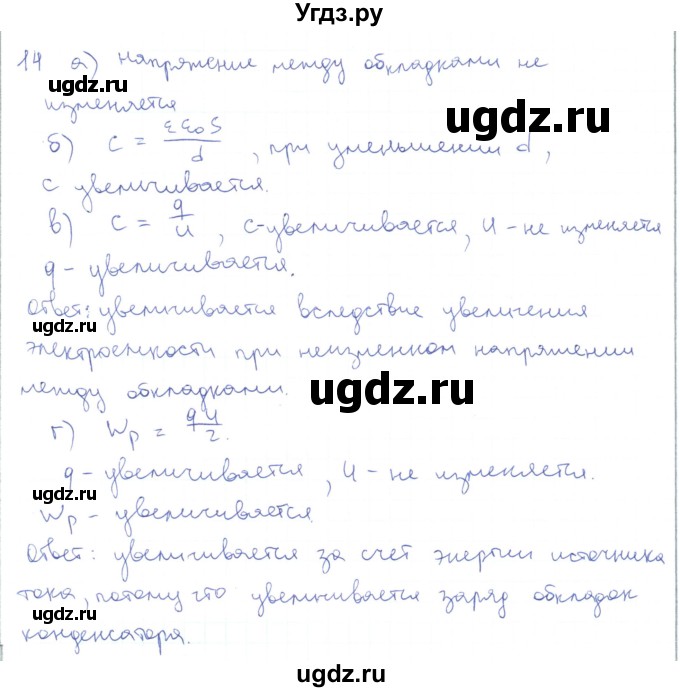 Угдз.ру
14 а) напряжение между обкладками не
изменяется
ugdz.ru
б) C = εε₀S/d, при уменьшении d,
ugdz.ru
C увеличивается.
в) C = q/U, C-увеличивается, U - не изменяется
q - увеличивается.
Ответ: увеличивается вследствие увеличения
ugdz.ru
электроемкости при неизменном напряжении
между обкладками.
ugdz.ru
г) Wp = qU/2.
q - увеличивается, U - не изменяется.
ugdz.ru
Wp - увеличивается.
Ответ: увеличивается за счет энергии источника
тока, потому что увеличивается заряд обкладок
ugdz.ru
конденсатора.
ugdz.ru